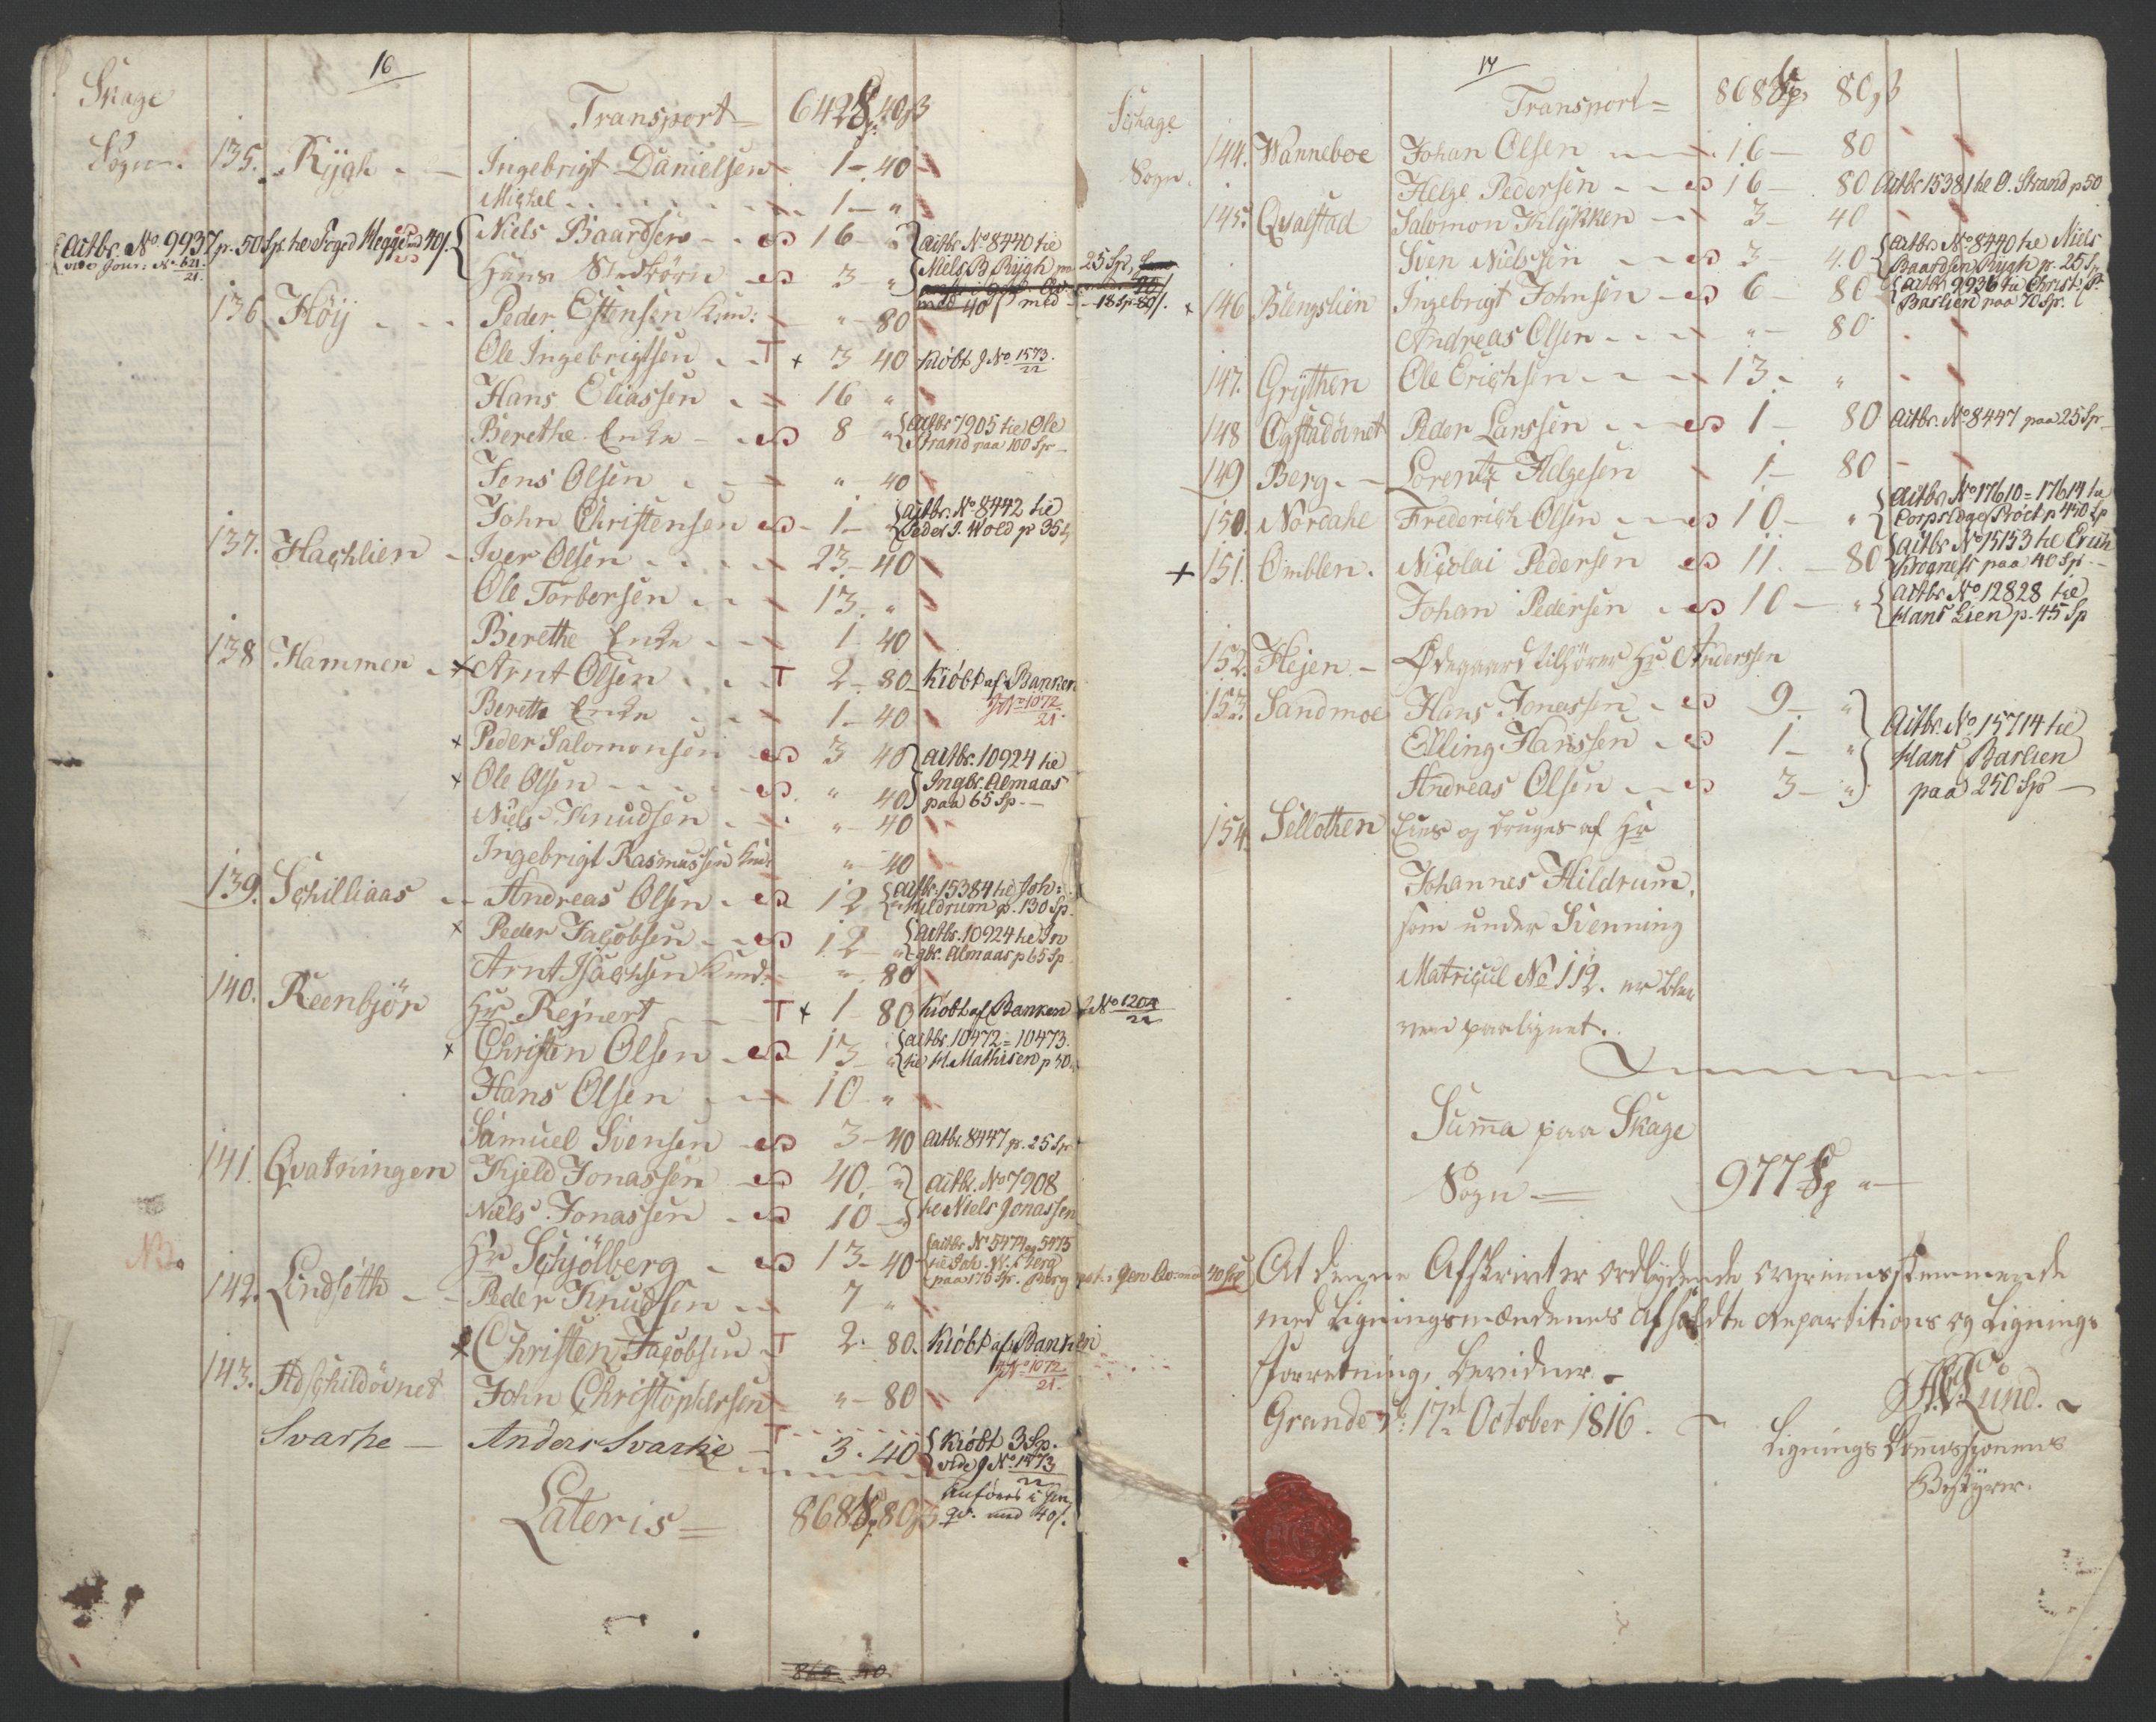 16
Skage
Sogn.
Transport = 642 Sp 40 ß
135. Rygh - Ingebrigt Danielsen 1 - 40
Michel 1 - "
Aitbr. No 9937 p. 50 Sp. til Foged Heggelund 40 ß.
vide Jour: No 621/21.
Niels Baardsen 16 - "
Hans Stedbörn 3 - "
Aitbr No 8440 til
Niels B Rygh p 25 Sp,
med 40 ß med 18 Sp 80 ß.
136. Höij Peder Estensen Kun: " - 80
Ole Ingebrigtsen T + 3 40 Kiöbt J No 1573/22
Hans Eliassen 16 "
Berethe Enke 8 " Aitbr 7905 til Ole
Strand paa 100 Sp
Jens Olsen " - 40
John Christensen 1 - " Aitbr. No 8442 til
Peder J. Wold p 35
137. Hachlien - Iver Olsen 23 - 40
Ole Torbersen 13 - "
Berethe Enke 1 - 40
138 Hammer + Arnt Olsen T 2 - 80 Kiöbt af Banken
J No 1072/21.
Berethe Enke 1 - 40
+ Peder Salomonsen 3 40 Aitbr. 10924 til
+ Ole Olsen " 40 Ingbr. Almaas
paa 65 Sp.
Niels Knudsen " - 40
Ingebrigt Rasmussen Kund: " - 40
139. Schilliaas - Andreas Olsen 12 Aitbr. 15384 til Joh:
Hildrum p. 130 Sp.
+ Peder Jacobsen 12 - " Aitbr. 10924 til In
gbr. Almaas p 65 Sp
Arnt Isachsen Kund: " 80
140. Reenbjör Hr Rejnert T + 1 - 80 Kiobt af Banken J No 1204/22
+ Christen Olsen 13 - " Aitbr. 10472 = 10473.
til H. Mathisen p 50
Hans Olsen 10 - "
Samuel Svensen 3 - 40 Aitbr. 8447 p. 25 Sp
141. Qvatningen Kjeld Jonassen 40 - " Aitbr. No 7908
Niels Jonassen 10 - " til Niels Jonassen
NB.
Hr Schjölberg 13 - 40 Aitbr No 5474 og 5475
til Joh. N. Berg
paa 175 Sp. Berg not. i Gen Qv: med 40 ß
142. Lindseth - Peder Knudsen 7 "
+ Christen Jacobsen T 2 - 80 Kiöbt af Banken
J No 1072/21.
143. Adschildövnet John Christophersen " - 80
Svarke - Anders Svarke T 3 - 40 Kiöbt 3 Sp.
vide J No 1573/22
Anföres i Gen
qv. med 40 ß.
Lateris = 868 Sp 80 ß
17
Skage
Sogn.
Transport = 868 Sp 80 ß
144. Wanneboe Johan Olsen 16 - 80
Helge Pedersen 16 - 80 Aitbr 15381 til O. Strand p 50
145. Qvalstad Salomon Klykken 3 - 40
Sven Nielssen 3 - 40 Aitbr. No 8440 til Niels
Baardsen Rygh p. 25 Sp
+ 146 Blengslien Ingebrigt Johnsen 6 - 80 Aitbr 9936 til Christ: P
Barlien paa 70 Sp.
Andreas Olsen " - 80
147. Grythen Ole Erichsen 13 - "
148 Ogstadövnet Peder Larssen 1 - 80 Aitbr. No 8447 paa 25 Sp
149 Berg - Lorentz Helgesen 1 - 80
150. Nordahl Frederich Olsen 10 - " Aitbr No 17610 = 17614 til
Corpslæge Pröct p 450 Sp
+ 151. Omblen. Nicolai Pedersen 11 - 80 Aitbr No 15153 til Erich
Krogness paa 40 Sp.
Johan Pedersen 10 - " Aitbr No 12828 til
Hans Lien p. 45 Sp
152. Hejen - Ödegaard tilhörer Hr Anderssen
153. Sandmoe Hans Jonassen 9 - "
Elling Hanssen 1 - "
Andreas Olsen 3 - "
Aitbr. No 15714 til
Hans Barlien
paa 250 Sp
154. Sellothen Eies og bruges af Hr
Johannes Hildrum,
som under Svenning
Matricul No 112. er blee
ven paalignet.
Suma paa Skage
Sogn = 977 Sp "
At denne Afskrivt er ordlydende overeensstemmende
med Ligningsmændenes afholdte Repartitions og Lignings
forretning, bevidner
Grande d: 17de October 1816.
Lund.
Lignings Commissionens
Bestyrer.